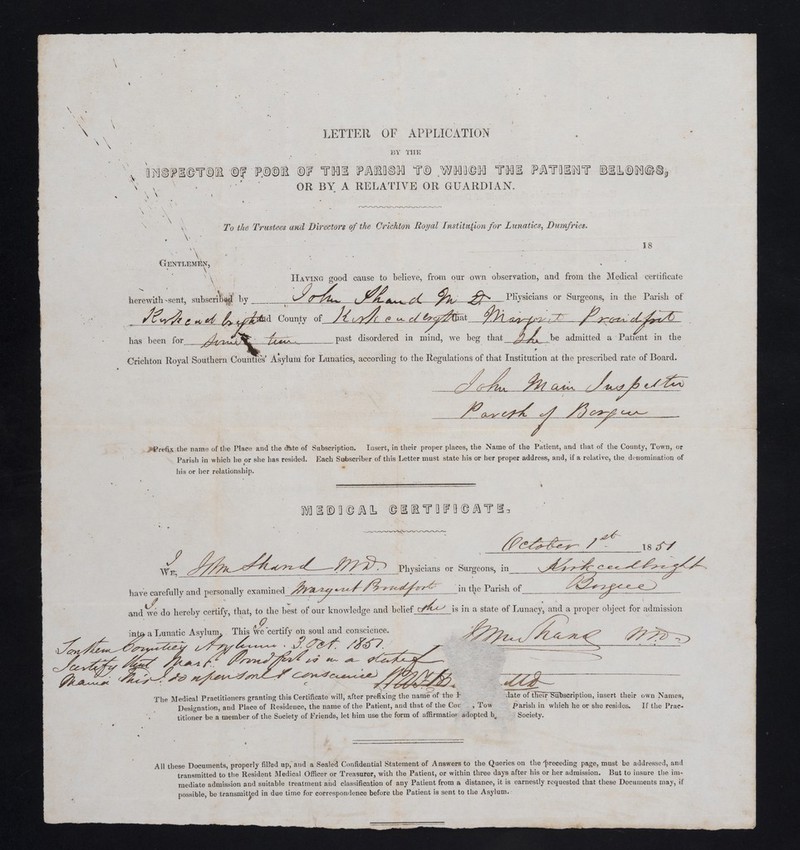 LETTER OF APPLICATION
BY THE
INSPECTOR OF POOR OF THE PARISH TO WHICH THE PATIENT BELONGS,
OR BY A RELATIVE OR GUARDIAN.
To the Trustees and Directors of the Crichton Royal Institution for Lunatics, Dumfries.
18
GENTLEMEN,
HAVING good cause to believe, from our own observation, and from the Medical certificate
herewith sent, subscribed by John Shand M D Physicians or Surgeons, in the Parish of
Kirkcudbright and County of Kirkcudbright that Margaret Proudfoot
has been for some time past disordered in mind, we beg that she be admitted a Patient in the
Crichton Royal Southern Counties' Asylum for Lunatics, according to the Regulations of that Institution at the prescribed rate of Board.
John Main Inspector
Parish of Borgue
Prefix the name of the Place and the date of Subscription. Insert, in their proper places, the Name of the Patient, and that of the County, Town, or
Parish in which he or she has resided. Each Subscriber of this Letter must state his or her proper address, and, if a relative, the denomination of
his or her relationship.
MEDICAL CERTIFICATE.
October 1st 1851
I
WE, Jno Shand M.D. Physicians or Surgeons, in Kirkcudbright
have carefully and personally examined Margaret Proudfoot in the Parish of Borgue
and we do hereby certify, that, to the best of our knowledge and belief she is in a state of Lunacy, and a proper object for admission
into a Lunatic Asylum, This we certify on soul and conscience.
Jno Shand M.D.
Southern Counties Asylum. 3. Oct. 1851.
I certify that Mart. Proudfoot is in a state of
Mania. This I do upon soul & conscience
M.D.
The Medical Practitioners granting this Certificate will, after prefixing the name of the date of their Subscription, insert their own Names,
Designation, and Place of Residence, the name of the Patient, and that of the , Tow Parish in which he or she resides. If the Prac-
titioner be a member of the Society of Friends, let him use the form of affirmation adopted Society.
All these Documents, properly filled up, and a Sealed Confidential Statement of Answers to the Queries on the preceding page, must be addressed, and
transmitted to the Resident Medical Officer or Treasurer, with the Patient, or within three days after his or her admission. But to insure the im-
mediate admission and suitable treatment and classification of any Patient from a distance, it is earnestly requested that these Documents may, if
possible, be transmitted in due time for correspondence before the Patient is sent to the Asylum.